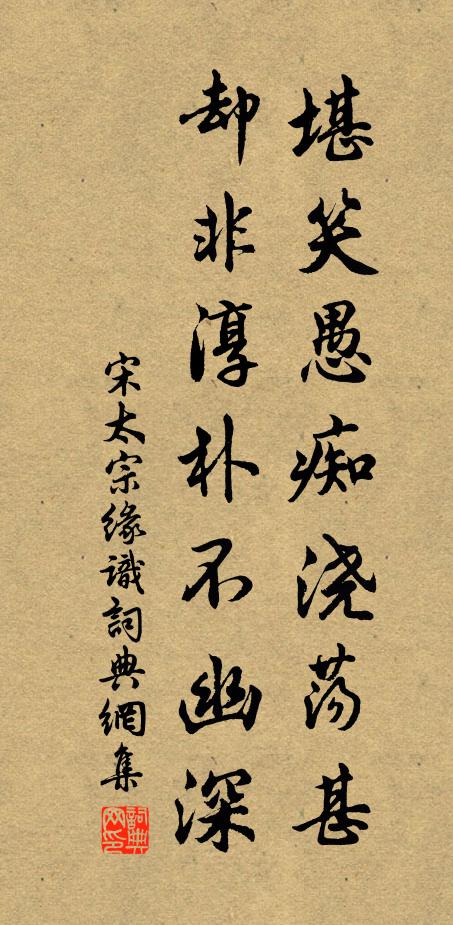 堪笑愚痴浇荡甚
却非淳朴不幽深
宋太宗緣識詞典網集
詞典网印